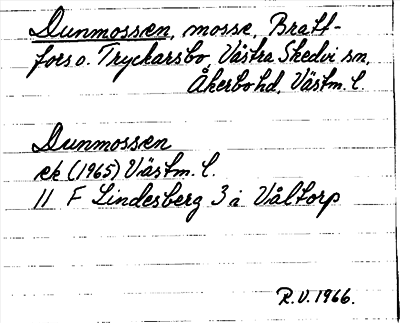 Dunmossen, mosse, Bratt-
fors o. Tryckarsbo Västra Skedvi sn,
Åkerbo hd, Västm. l.
Dunmossen
ek (1965) Västm. l.
11 F Lindesberg 3 i Våltorp
R.V. 1966.